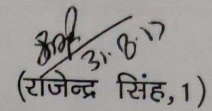 31.8.17
(राजेन्द्र सिंह, 1)